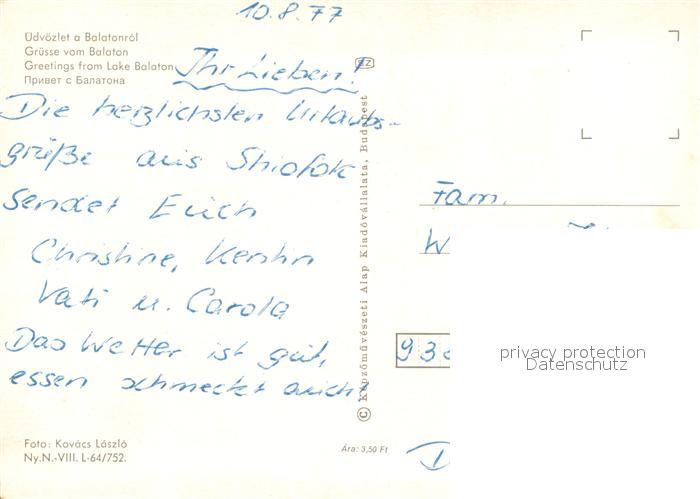 10.8.77
Üdvözlet a Balatonról
Grüsse vom Balaton
Greetings from Lake Balaton
Привет с Балатона
Ihr Lieben!
Die herzlichsten Urlaubs-
grüße aus Shiofok
sendet Euch
Christine, Kerstin
Vati u. Carola
Das Wetter ist gut,
essen schmeckt auch!
Foto: Kovács László
Ny.N.-VIII. L-64/752.
Ára: 3,50 Ft
© Képzőművészeti Alap Kiadóvállalata, Budapest
Fam.
W
93
D
privacy protection
Datenschutz